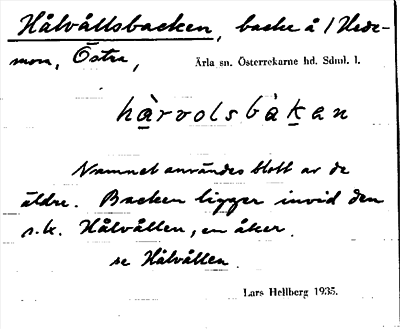 Hålvållsbacken, backe å 1 Hede-
mon, Östra,
Ärla sn. Österrekarne hd. Sdml. l.
hàrvolsbàkan
Namnet användes blott av de
äldre. Backen ligger invid den
s.k. Hålvållen, en åker.
se Hålvållen.
Lars Hellberg 1935.